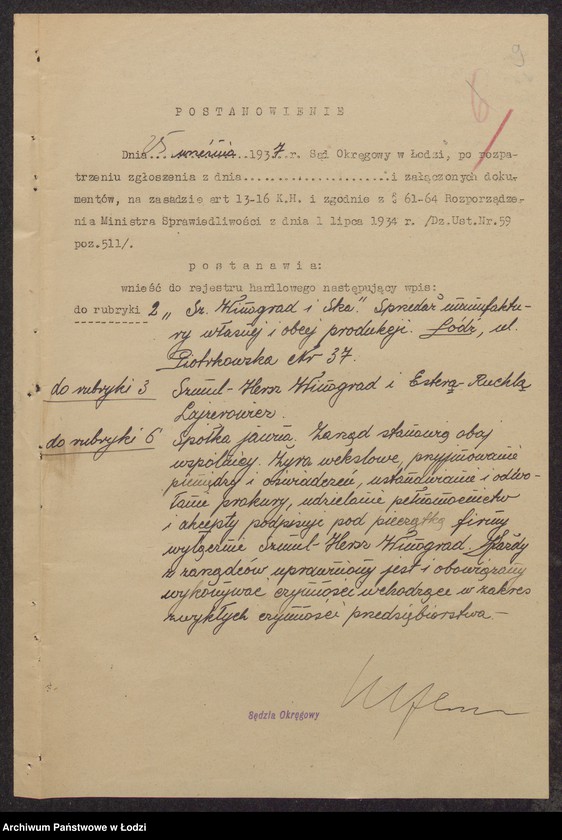 9
6
POSTANOWIENIE
Dnia 25 września 1937 r. Sąd Okręgowy w Łodzi, po rozpa-
trzeniu zgłoszenia z dnia.....................i załączonych doku-
mentów, na zasadzie art 13-16 K.H. i zgodnie z § 61-64 Rozporządze-
nia Ministra Sprawiedliwości z dnia 1 lipca 1934 r. /Dz.Ust.Nr.59
poz.511/.
postanawia:
wnieść do rejestru handlowego następujący wpis:
do rubryki 2 „Sz. Winograd i Ska". Sprzedaż manufaktu-
ry własnej i obcej produkcji. Łódź, ul.
Piotrkowska Nr 37.
do rubryki 3 Szmul-Hersz Winograd i Estera-Ruchla
Lajzerowicz.
do rubryki 6 Spółka jawna. Zarząd stanowią obaj
wspólnicy. Żyra wekslowe, przyjmowanie
pieniędzy i oświadczeń, ustanawianie i odwo-
łanie prokury, udzielanie pełnomocnictw
i akcepty podpisuje pod pieczątką firmy
wyłącznie Szmul-Hersz Winograd. Każdy
z zarządców uprawniony jest i obowiązany
wykonywać czynności wchodzące w zakres
zwykłych czynności przedsiębiorstwa.-
Sędzia Okręgowy
Archiwum Państwowe w Łodzi